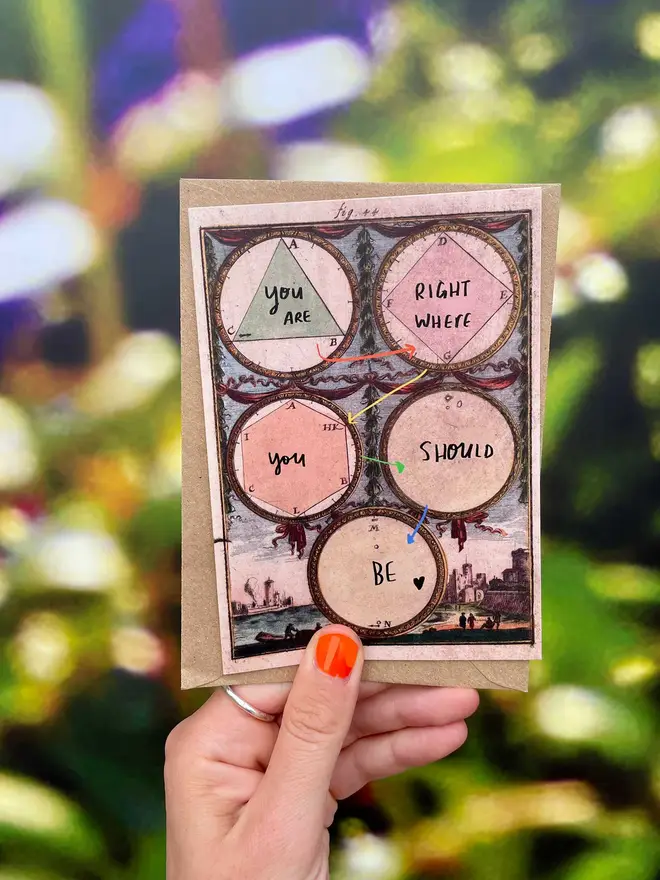 fig. 44
A
YOU
ARE
C
B
D
RIGHT
WHERE
F
E
G
A
I
HK
YOU
C
B
L
O
SHOULD
M
BE
N